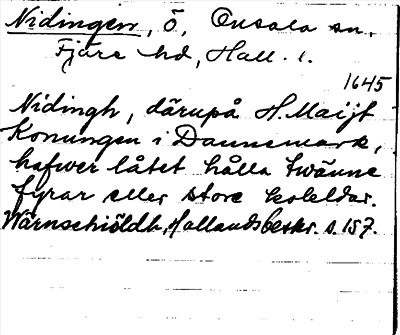 Nidingen, ö, Onsala sn,
Fjäre hd, Hall. l.
1645
Nidingh, därupå H. Maijt
Konungen i Dannemark,
hafwer låtet hålla twänne
fyrar eller store koleldar.
Wärnschiöldh, Hallandsbeskr. s. 157.